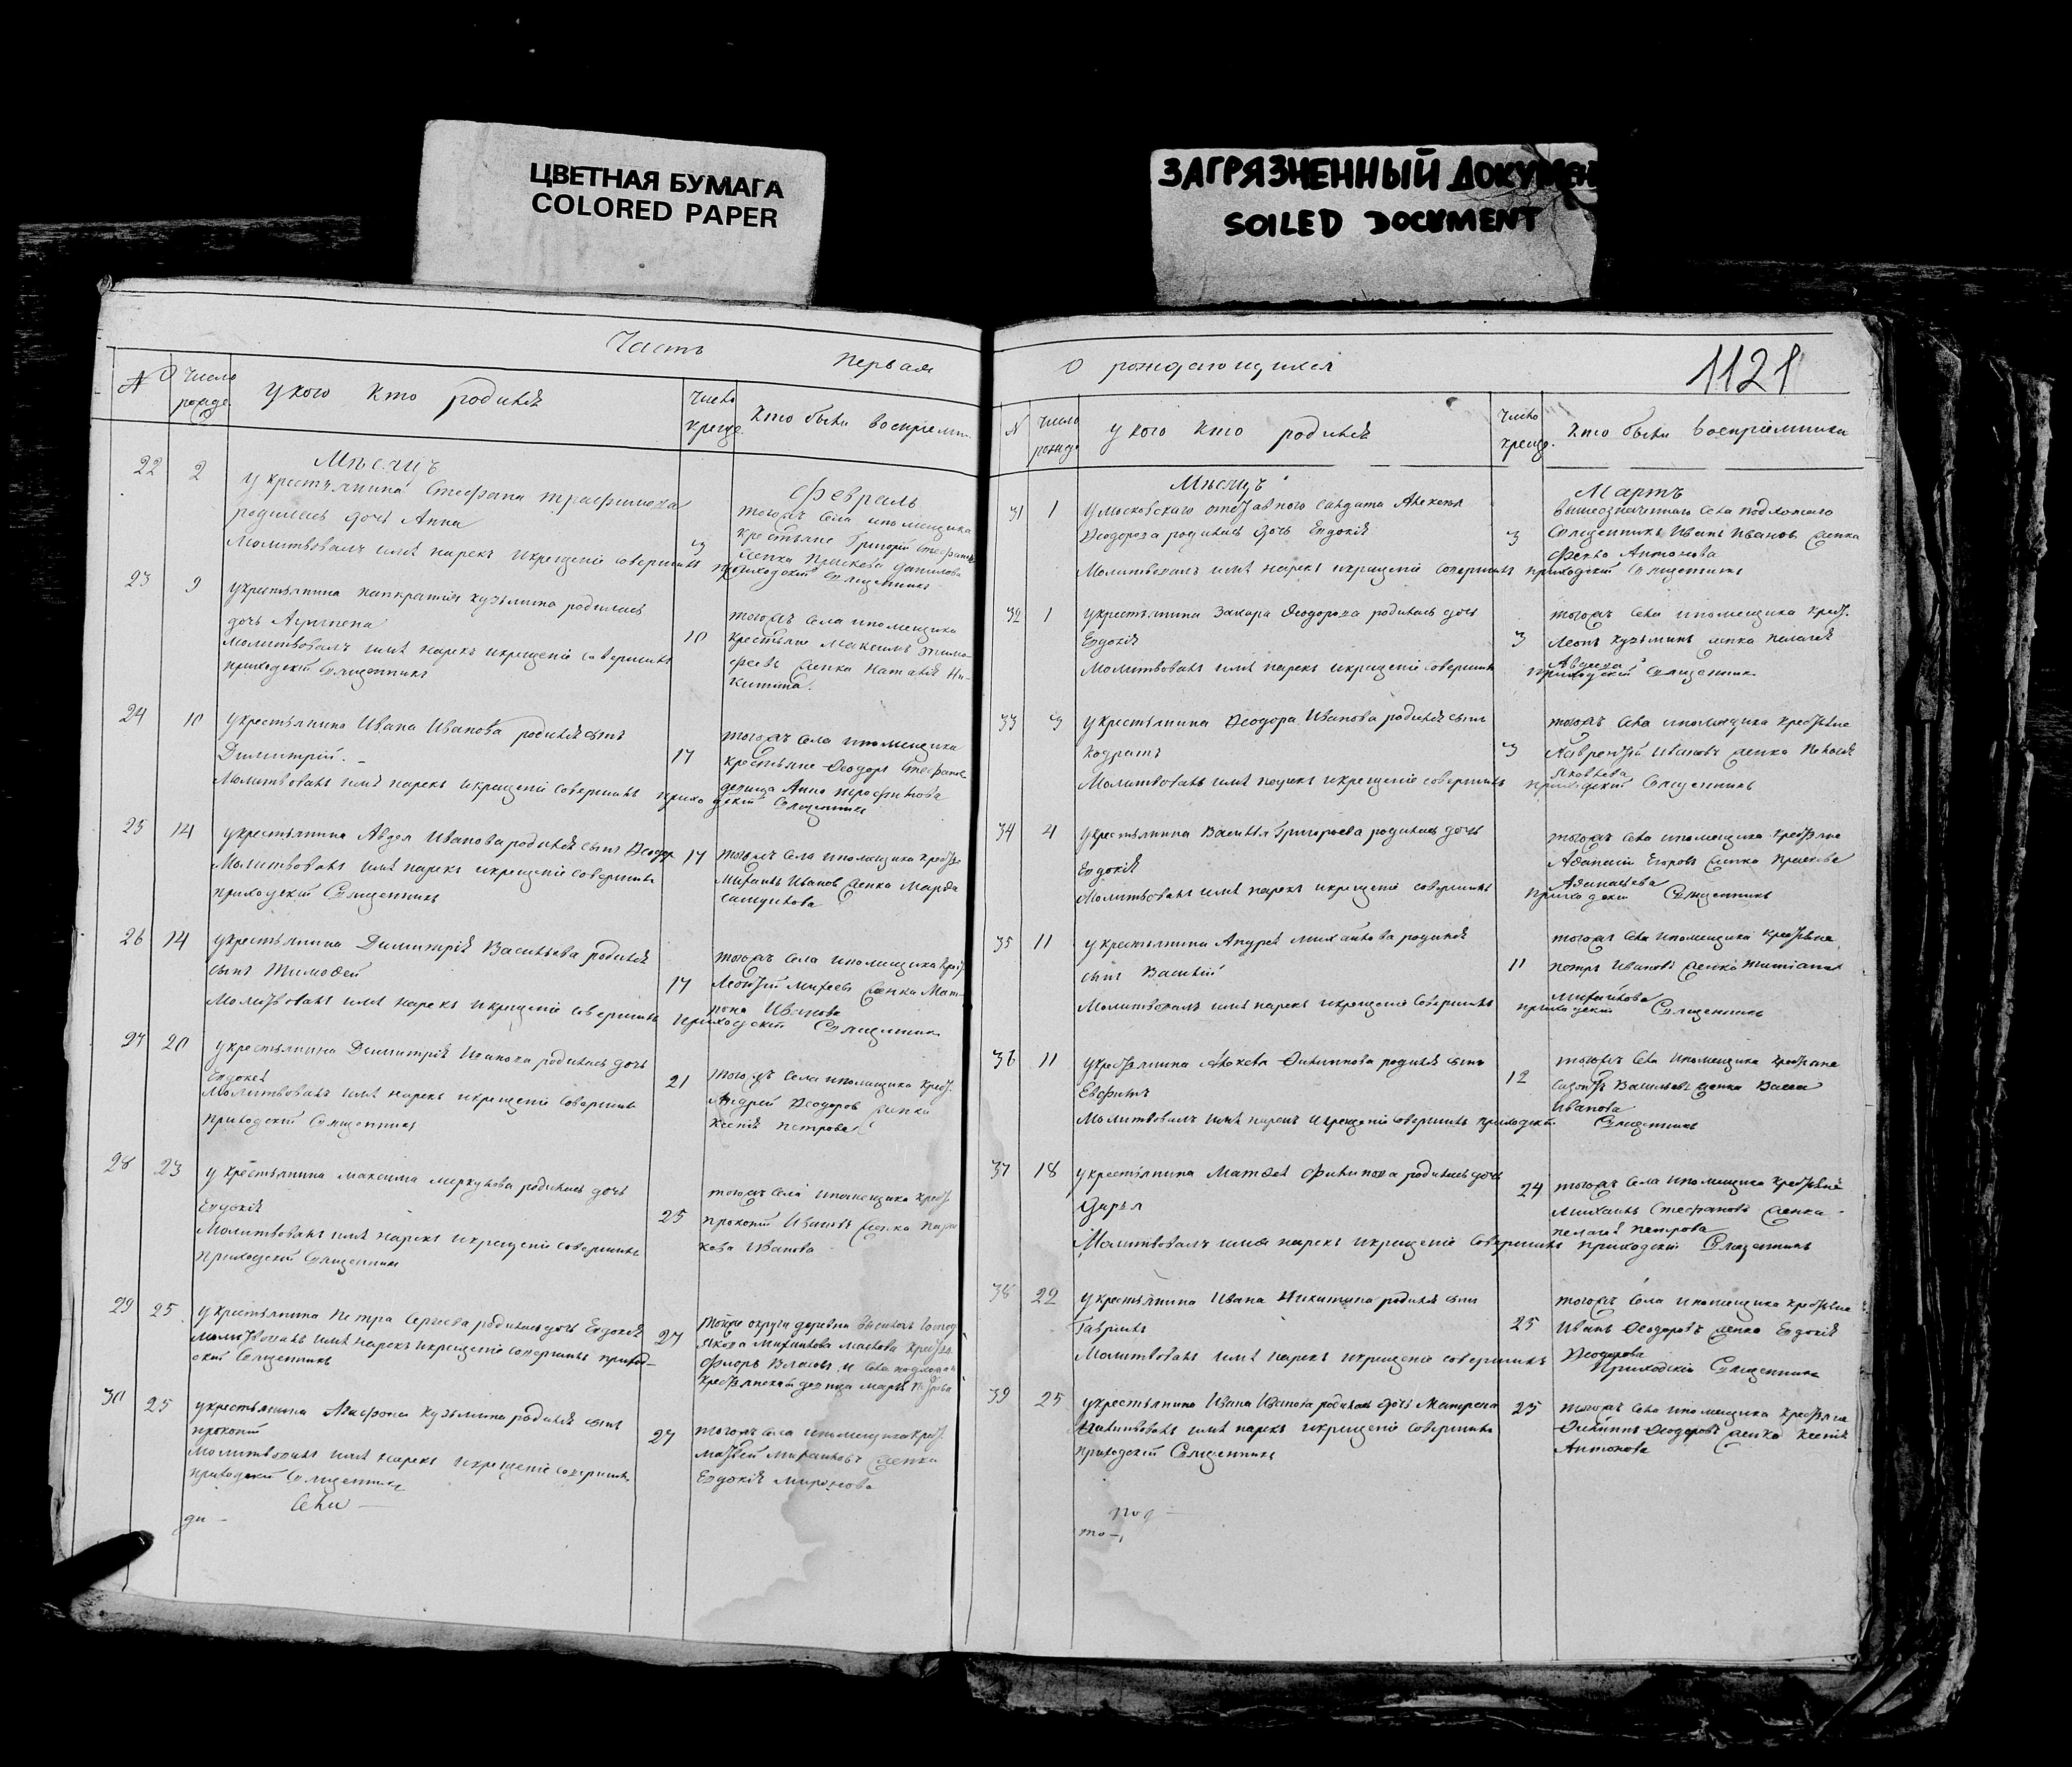 ЦВЕТНАЯ БУМАГА
COLORED PAPER
ЗАГРЯЗНЕННЫЙ ДОКУМЕН
SOILED DOCUMENT
Часть первая
№ Число рожде. У кого кто родился Число креще. Кто были восприемн.
Мѣсяцъ Февраль
22 2 У крестьянина Стефана Трофимова
родилась дочь Анна
Молитвовалъ имя нарекъ и крещеніе совершилъ приходскій Священникъ
3 тогожъ села и помещика
крестьяне Григорій Стефановъ
и девка Прасковья Данилова
23 9 У крестьянина Панкратія Кузьмина родилась
дочь Агрипена
Молитвовалъ имя нарекъ и крещеніе совершилъ
приходскій Священникъ
10 тогожъ села и помещика
крестьяне Максимъ Тимо-
феевъ и девка Наталья Ни-
китина.
24 10 У крестьянина Ивана Иванова родился сынъ
Димитрій.
Молитвовалъ имя нарекъ и крещеніе совершилъ приходскій Священникъ
17 тогожъ села и помещика
крестьяне Ѳеодоръ Стефановъ
девица Анна Трофимова
25 14 У крестьянина Авдея Иванова родился сынъ Ѳеодоръ
Молитвовалъ имя нарекъ и крещеніе совершилъ
приходскій Священникъ
17 тогожъ села и помещика крестья
Михаилъ Иванов и девка Марфа
Самуилова
26 14 У крестьянина Димитрія Васильева родился
сынъ Тимоѳей
Молитвовалъ имя нарекъ и крещеніе совершилъ приходскій Священникъ
17 тогожъ села и помещика крест
Леонтій Михеевъ и девка Мат-
рона Иванова
27 20 У крестьянина Димитрія Иванова родилась дочь
Евдокея
Молитвовалъ имя нарекъ и крещеніе совершилъ
приходскій Священникъ
21 тогожъ села и помещика крест.
Андрей Ѳеодоров и девка
Ксенія Петрова
28 23 У крестьянина Максима Меркулова родилась дочь
Евдокія
Молитвовалъ имя нарекъ и крещеніе совершилъ
приходскій Священник
25 тогожъ села и помещика крест
Прокопій Ивановъ и девка
Иванова
29 25 У крестьянина Петра Сергеева родилась дочь Евдокія
Молитвовалъ имя нарекъ и крещеніе совершилъ приход-
скій Священникъ
27 тойже округи деревни
Якова Михайлова крестья.
Флоръ Власовъ и села
крестьянская девица Марья Петрова
30 25 У крестьянина Агафона Кузьмина родился сынъ
Прокопій
Молитвовалъ имя нарекъ и крещеніе совершилъ
приходскій Священникъ
27 тогожъ села и помещика крест.
Матвей Михайловъ и девка
Евдокія Миронова
О рождающихся
1121
N Число рожде У кого кто родился Число креще. Кто были восприемники
Мѣсяцъ Мартъ
31 1 У московскаго отставного солдата Алексея
Ѳеодорова родилась дочь Евдокія
Молитвовалъ имя нарекъ и крещеніе совершилъ приходскій Священникъ
3 вышеозначеннаго села
Священникъ Иванъ Иванов и девка
Фекла Антонова
32 1 У крестьянина Захара Ѳеодорова родилась дочь
Евдокія
Молитвовалъ имя нарекъ и крещеніе совершилъ приходскій Священник
3 тогожъ села и помещика крест.
Леонъ Кузьминъ девка Пелагея
Авдеева
33 3 У крестьянина Ѳеодора Иванова родился сынъ
Кодратъ
Молитвовалъ имя нарекъ и крещеніе совершилъ приходскій Священникъ
3 тогожъ села и помещика крестьяне
Лаврентій Ивановъ девка Пелагея
Яковлева
34 4 У крестьянина Василья Григорьева родилась дочь
Евдокія
Молитвовалъ имя нарекъ и крещеніе совершилъ приходскій Священникъ
тогожъ села и помещика крестьяне
Аѳанасій Егоровъ девка Прасковья
Аѳанасьева
35 11 У крестьянина Андрея Михайлова родился
сынъ Василій
Молитвовалъ имя нарекъ и крещеніе совершилъ приходскій Священникъ
11 тогожъ села и помещика крестьяне
Петръ Ивановъ девка Татиана
Михайлова
36 11 У крестьянина Алексея Филиппова родился сынъ
Евфимъ
Молитвовалъ имя нарекъ и крещеніе совершилъ приходскій Священникъ
12 тогожъ села и помещика крестьяне
Васильевъ девка Васса
Иванова
37 18 У крестьянина Матвея Филипова родилась дочь
Дарья
Молитвовалъ имя нарекъ и крещеніе совершилъ приходскій Священникъ
24 тогожъ села и помещика крестьяне
Михаилъ Стефановъ девка
Пелагея Петрова
38 22 У крестьянина Ивана Никитина родился сынъ
Гавриилъ
Молитвовалъ имя нарекъ и крещеніе совершилъ Приходскій Священникъ
25 тогожъ села и помещика крестьяне
Иванъ Ѳеодоровъ девка Евдокія
Ѳеодорова
39 25 У крестьянина Ивана Иванова родилась дочь Матрена
Молитвовалъ имя нарекъ и крещеніе совершилъ
приходскій Священникъ
25 тогожъ села и помещика крестьяне
Филиппъ Ѳеодоровъ девка Ксенія
Антонова